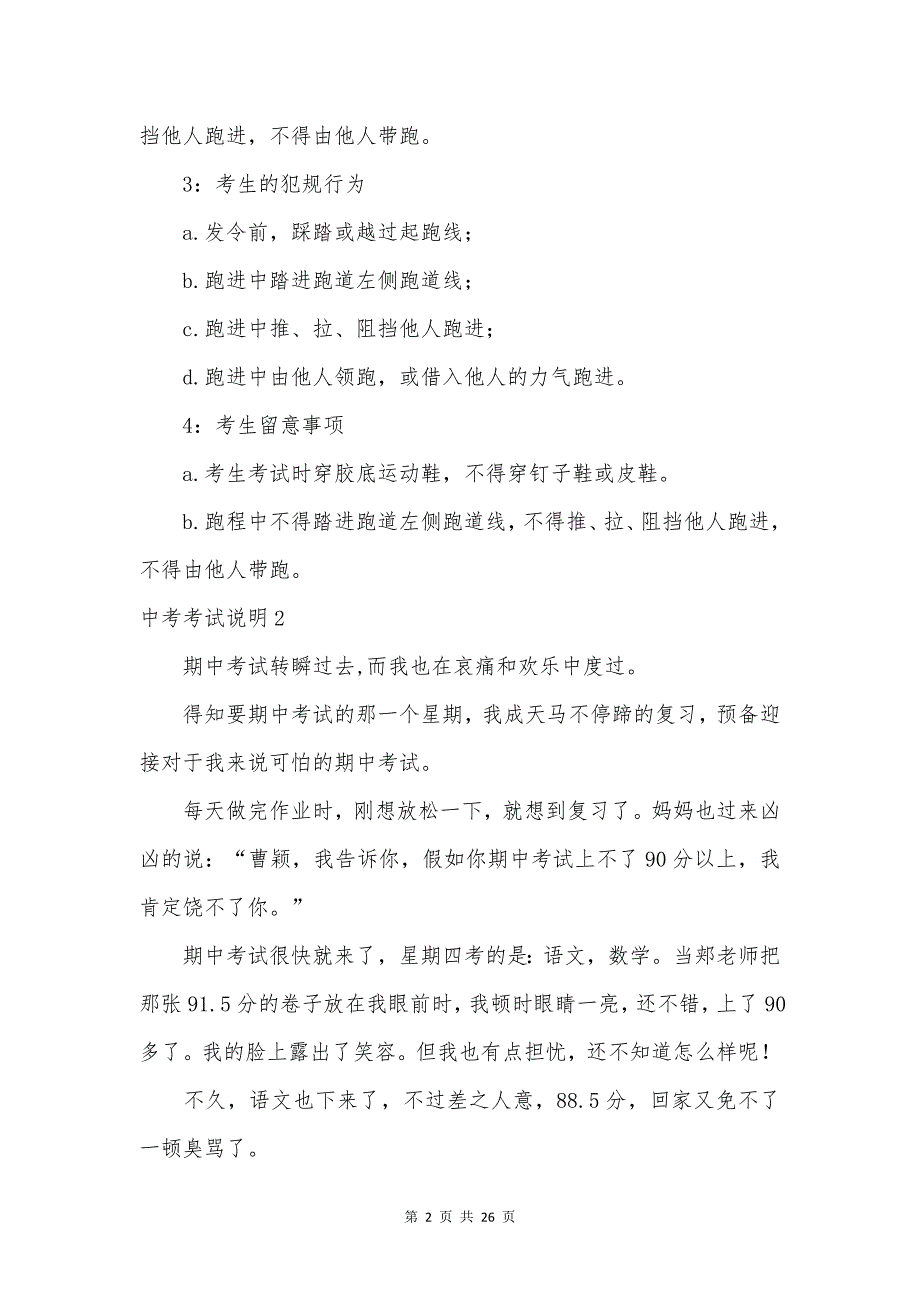 挡他人跑进，不得由他人带跑。
3：考生的犯规行为
a.发令前，踩踏或越过起跑线；
b.跑进中踏进跑道左侧跑道线；
c.跑进中推、拉、阻挡他人跑进；
d.跑进中由他人领跑，或借入他人的力气跑进。
4：考生留意事项
a.考生考试时穿胶底运动鞋，不得穿钉子鞋或皮鞋。
b.跑程中不得踏进跑道左侧跑道线，不得推、拉、阻挡他人跑进，
不得由他人带跑。
中考考试说明2
期中考试转瞬过去,而我也在哀痛和欢乐中度过。
得知要期中考试的那一个星期，我成天马不停蹄的复习，预备迎
接对于我来说可怕的期中考试。
每天做完作业时，刚想放松一下，就想到复习了。妈妈也过来凶
凶的说：“曹颖，我告诉你，假如你期中考试上不了90分以上，我
肯定饶不了你。”
期中考试很快就来了，星期四考的是：语文，数学。当郏老师把
那张91.5分的卷子放在我眼前时，我顿时眼睛一亮，还不错，上了90
多了。我的脸上露出了笑容。但我也有点担忧，还不知道怎么样呢！
不久，语文也下来了，不过差之人意，88.5分，回家又免不了
一顿臭骂了。
第 2 页 共 26 页